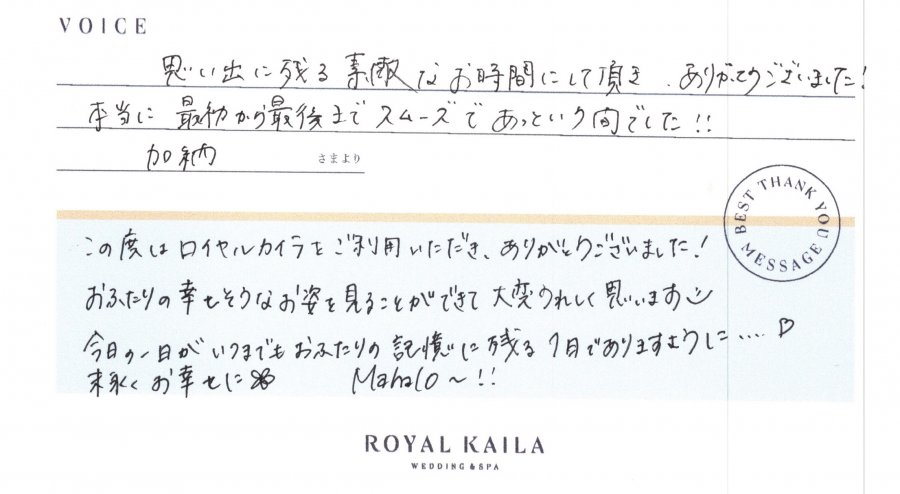 VOICE
思い出に残る素敵なお時間にして頂き、ありがとうございました!
本当に最初から最後までスムーズであっという間でした!!
加納 さまより
BEST THANK YOU MESSAGE
この度はロイヤルカイラをご利用いただき、ありがとうございました!
おふたりの幸せそうなお姿を見ることができて大変うれしく思います
今日の一日がいつまでもおふたりの記憶に残る1日でありますように....♡
末永くお幸せに Mahalo~!!
ROYAL KAILA
WEDDING & SPA